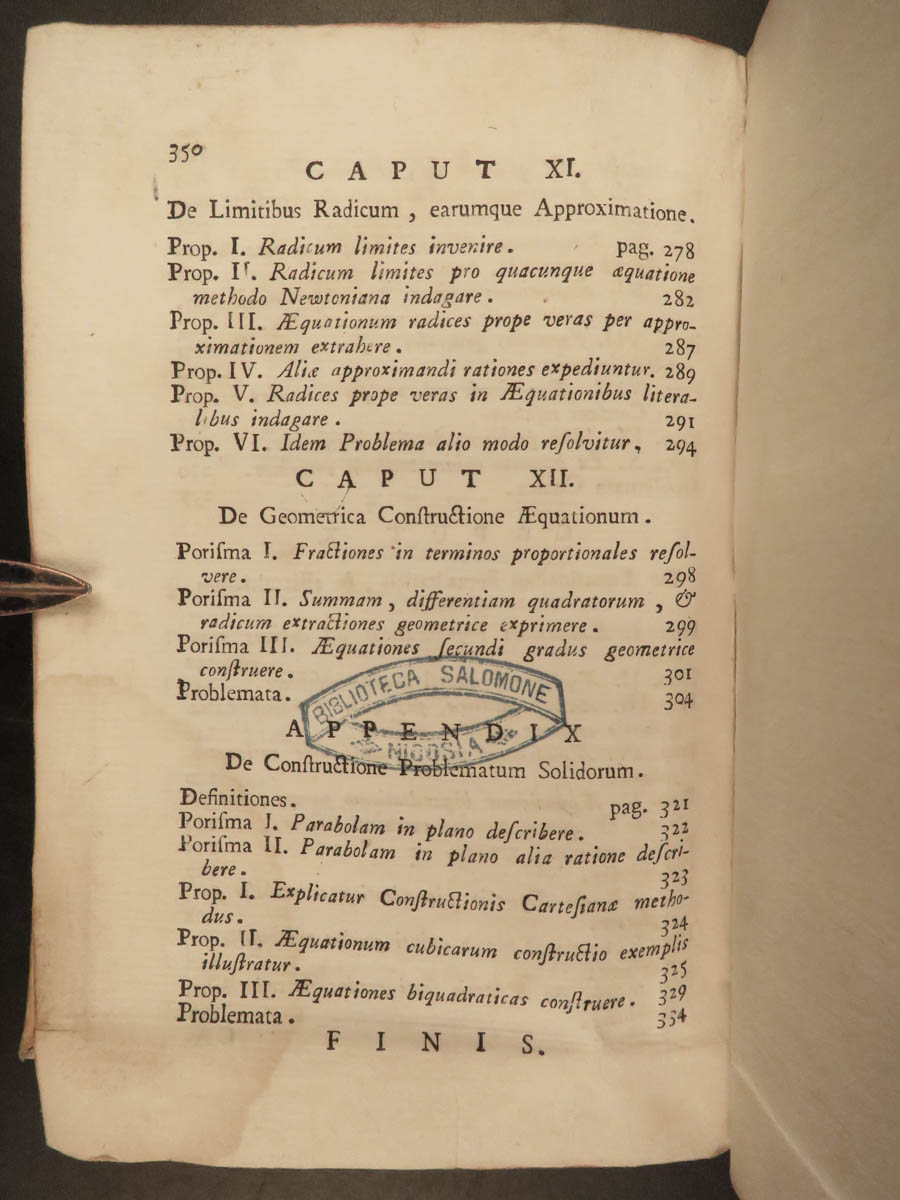 350
CAPUT XI.
De Limitibus Radicum, earumque Approximatione.
Prop. I. Radicum limites invenire. pag. 278
Prop. II. Radicum limites pro quacunque æquatione
methodo Newtoniana indagare. 282
Prop. III. Æquationum radices prope veras per appro-
ximationem extrahere. 287
Prop. IV. Aliæ approximandi rationes expediuntur. 289
Prop. V. Radices prope veras in Æquationibus litera-
libus indagare. 291
Prop. VI. Idem Problema alio modo reſolvitur, 294
CAPUT XII.
De Geometrica Conſtructione Æquationum.
Poriſma I. Fractiones in terminos proportionales reſol-
vere. 298
Poriſma II. Summam, differentiam quadratorum, &
radicum extractiones geometrice exprimere. 299
Poriſma III. Æquationes ſecundi gradus geometrice
conſtruere. 301
Problemata. 304
BIBLIOTECA SALOMONE
NICOSIA
APPENDIX
De Conſtructione Problematum Solidorum.
Definitiones. pag. 321
Poriſma I. Parabolam in plano deſcribere. 322
Poriſma II. Parabolam in plano alia ratione deſcri-
bere. 323
Prop. I. Explicatur Conſtructionis Carteſianæ metho-
dus. 324
Prop. II. Æquationum cubicarum conſtructio exemplis
illuſtratur. 325
Prop. III. Æquationes biquadraticas conſtruere. 329
Problemata. 334
FINIS.